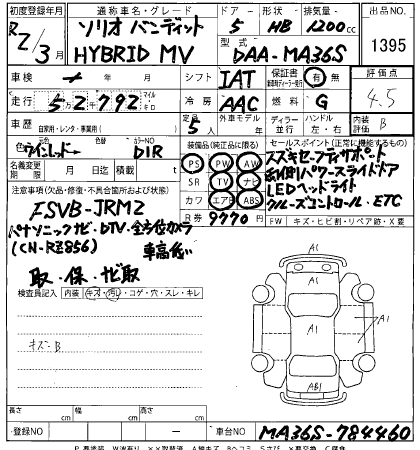 初度登録年月 通称車名・グレード ドア 形状 排気量 出品NO
R2/3月 ソリオ バンディット HYBRID MV 5 HB 1200cc 1395
型式 DAA-MA36S
車検 年 月 シフト IAT 保証書 有 無 評価点 4.5
走行 52792 マイル キロ 冷房 AAC 燃料 G
車歴 自家用・レンタ・事業用( ) 定員 5人 外車モデル年 ディーラー 並行 ハンドル 左・右 内装 B
色 色替 カラーNO DIR
装備品(純正品に限る) セールスポイント
名義変更期限 月 日 リサイクル預託金
PS PW AW
SR TV ナビ
カワ エアB ABS
R券 9770円
スズキセーフティサポート
両側パワースライドドア
LEDヘッドライト
クルーズコントロール・ETC
注意事項(欠品・修復・不具合箇所および状態)
FSVB-JRM2
パナソニックナビ・DTV・全方位カメラ
(CN-RZ856) 車高低い
取・保・ナビ取
FW キズ・ヒビ割・リペア跡・X要
検査員記入 内装 キズ・汚レ・コゲ・穴・スレ・キレ
キズ・B
A1
A1
A1
A1
AB1
長さ cm 幅 cm 高さ cm
登録NO — 車台NO MA36S-784460